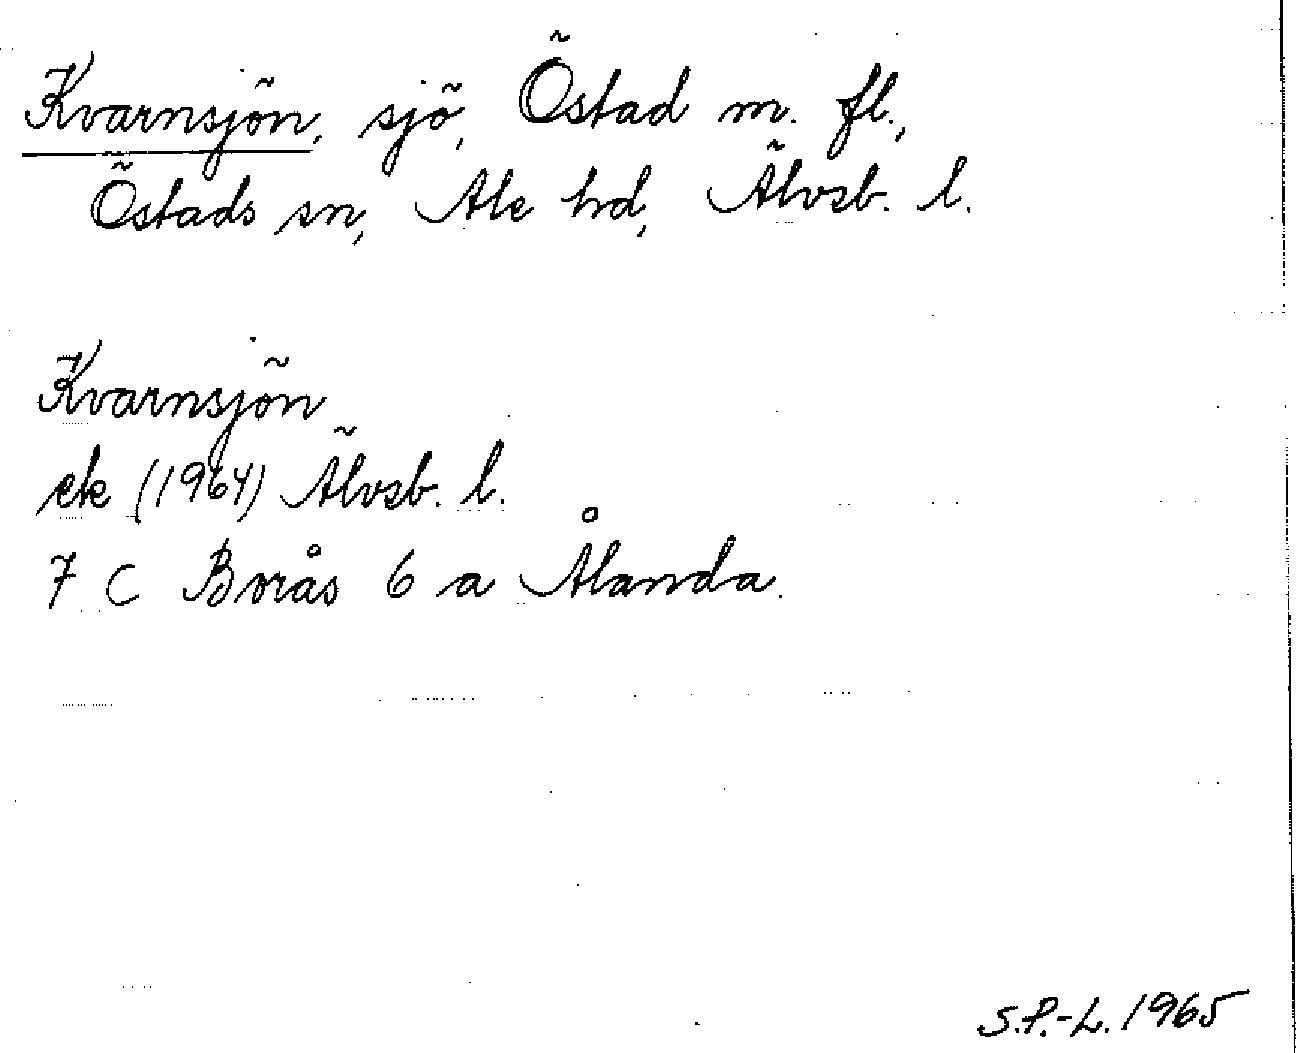 Kvarnsjön, sjö, Östad m. fl.,
Östads sn, Ale hd, Älvsb. l.
Kvarnsjön
ek (1964) Älvsb. l.
7 C Borås 6 a Ålanda.
S.P.-L. 1965